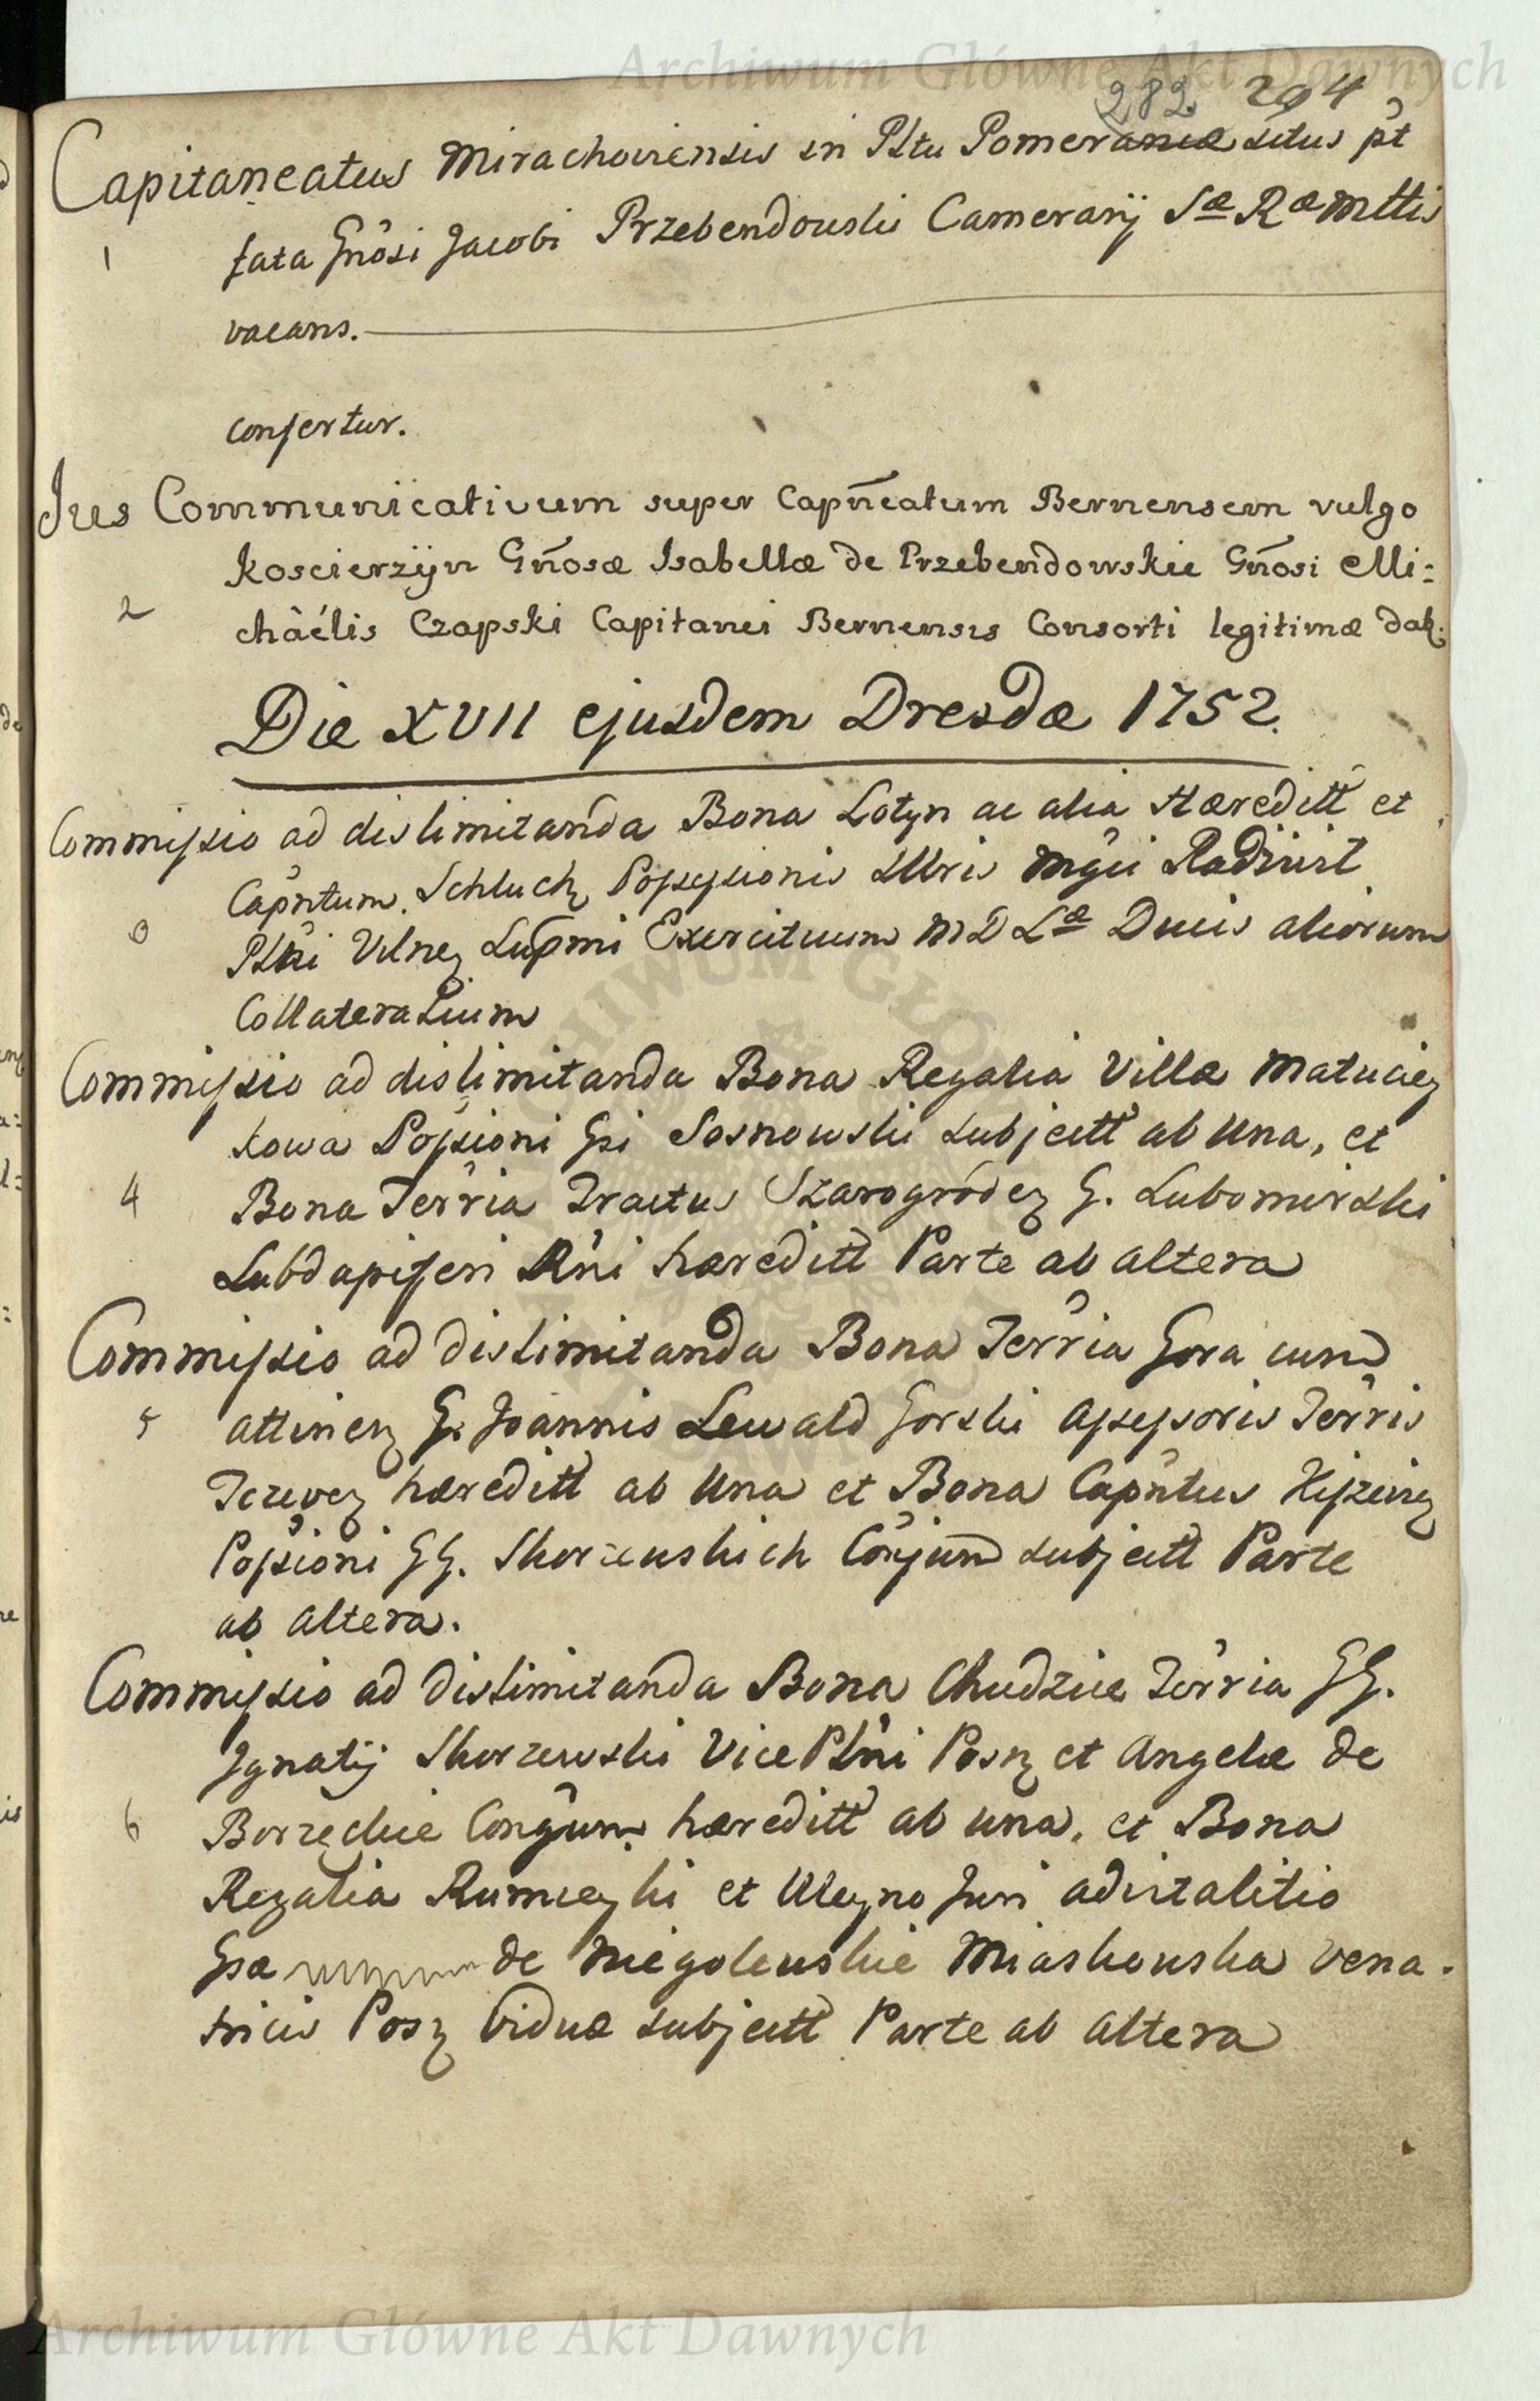 Archiwum Główne Akt Dawnych
282. 294
Capitaneatus Mirachoviensis in Pltu Pomeraniæ situs pt
1 fata Gnosi Jacobi Przebendowski Camerarij Sæ Ræ Mttis
vacans.
confertur.
Jus Communicativum super Capñeatum Bernensem vulgo
2 Koscierzyn Gñosæ Isabellæ de Przebendowskie Gñosi Mi:
chäélis Czapski Capitanei Bernensis Consorti legitimæ dat:
Die XVII ejusdem Dresdæ 1752.
Commissio ad dislimitanda Bona Lotyn ac alia Hæreditt et
Capntum. Schluch Possessionis Illris Mgci Radziwił
3 Pltni Vilnen Supmi Exercituum M D Læ Ducis aliorum
Collateralium
Commissio ad dislimitanda Bona Regalia Villæ Matuciez
kowa Possioni Gsi Sosnowski subjectt ab Una, et
4 Bona Terria Tractus Szarogródez G. Lubomirski
Subdapiferi Rni hæreditt Parte ab altera
Commissio ad dislimitanda Bona Terria Gora cum
5 attinen G. Joannis Lewald Gorski Assessoris Terris
Tczeven hæreditt ab Una et Bona Capntus Kiszinen
Possioni GG. Skorzewskich Conjum subjectt Parte
ab altera.
Commissio ad dislimitanda Bona Chudzice Terria GG.
Ignatij Skorzewski Vice Pltni Posn et Angelæ de
6 Borzęckie Conjum hæreditt ab una, et Bona
Regalia Rumieyki et Uleyno Juri advitalitio
Gsæ de Niegolewskie Miaskowska Vena-
tricis Posn Viduæ subjectt Parte ab altera
Archiwum Główne Akt Dawnych